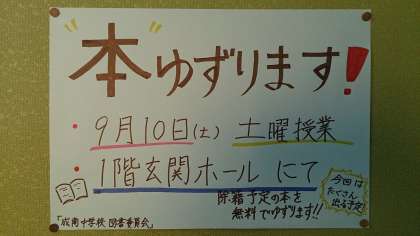 "本"ゆずります!
・9月10日(土) 土曜授業
・1階玄関ホール にて
除籍予定の本を
無料でゆずります!!
今回は
たくさん
出る予定!
「成南中学校 図書委員会」